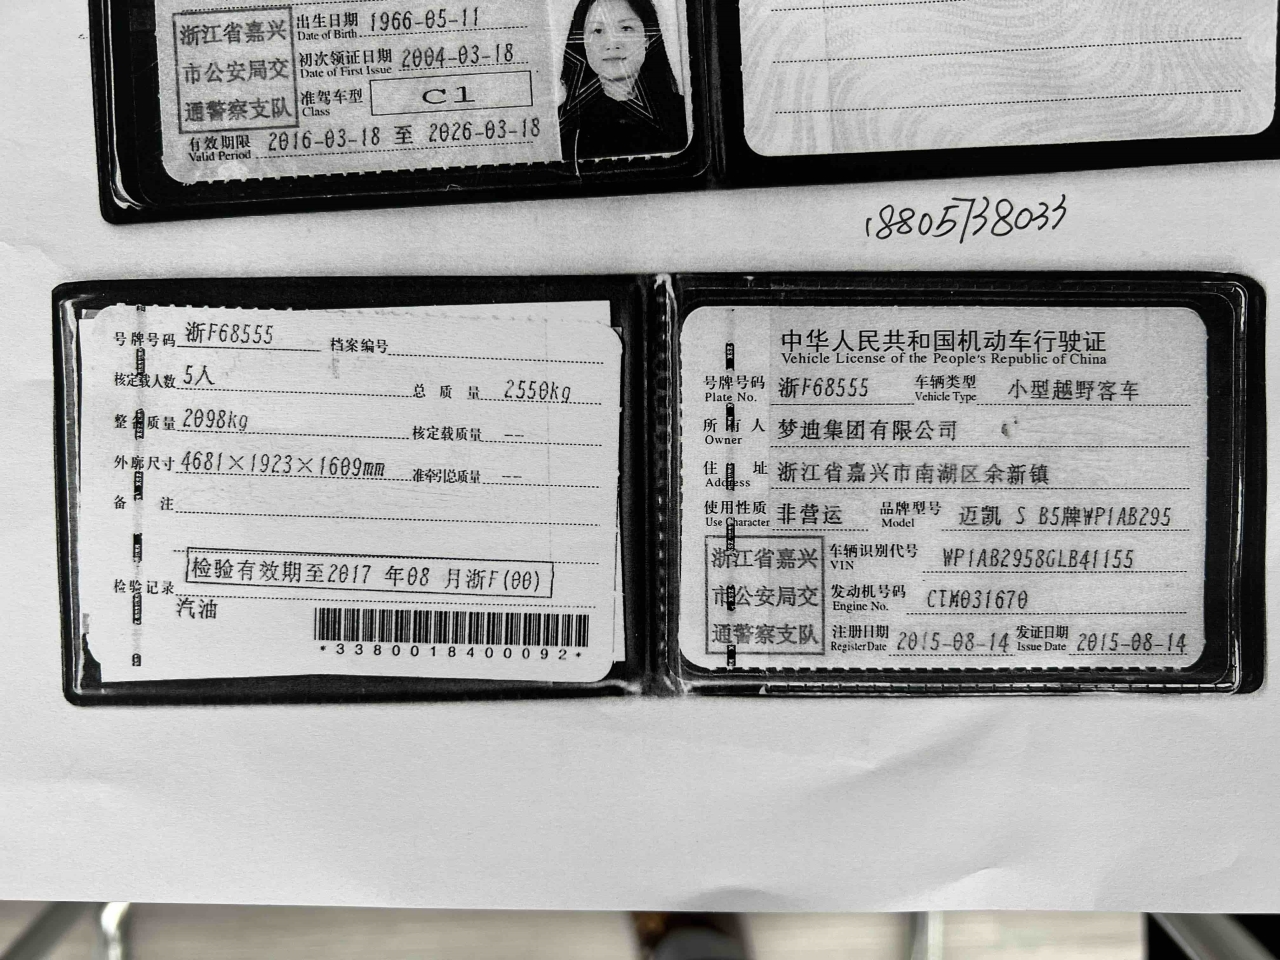 浙江省嘉兴
市公安局交
通警察支队
出生日期 1966-05-11
Date of Birth
初次领证日期 2004-03-18
Date of First Issue
准驾车型 C1
Class
有效期限 2016-03-18 至 2026-03-18
Valid Period
18805738033
号牌号码 浙F68555 档案编号
核定载人数 5人 总质量 2550kg
整备质量 2098kg 核定载质量 --
外廓尺寸 4681×1923×1609mm 准牵引总质量 --
备注
检验有效期至2017 年08 月浙F(00)
检验记录
汽油
*3380018400092*
中华人民共和国机动车行驶证
Vehicle License of the People's Republic of China
号牌号码 浙F68555 车辆类型 小型越野客车
Plate No. Vehicle Type
所有人 梦迪集团有限公司
Owner
住址 浙江省嘉兴市南湖区余新镇
Address
使用性质 非营运 品牌型号 迈凯 S B5牌WP1AB295
Use Character Model
浙江省嘉兴
市公安局交
通警察支队
车辆识别代号 WP1AB2958GLB41155
VIN
发动机号码 CTM031670
Engine No.
注册日期 2015-08-14 发证日期 2015-08-14
Register Date Issue Date